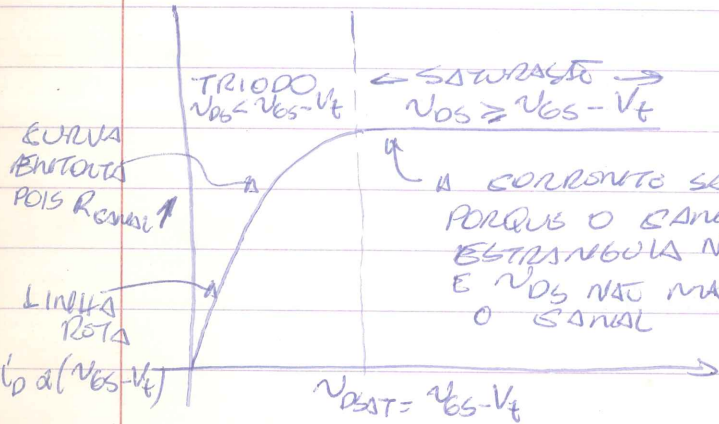 TRIODO
v_DS < v_GS - V_t
← SATURAÇÃO →
v_DS ≥ v_GS - V_t
CURVA
POIS R_CANAL ↑
A CORRENTE S
PORQUE O CANA
ESTRANGULA N
E v_DS NÃO MA
O CANAL
LINHA
RETA
i_D α (v_GS - V_t)
v_DSAT = v_GS - V_t